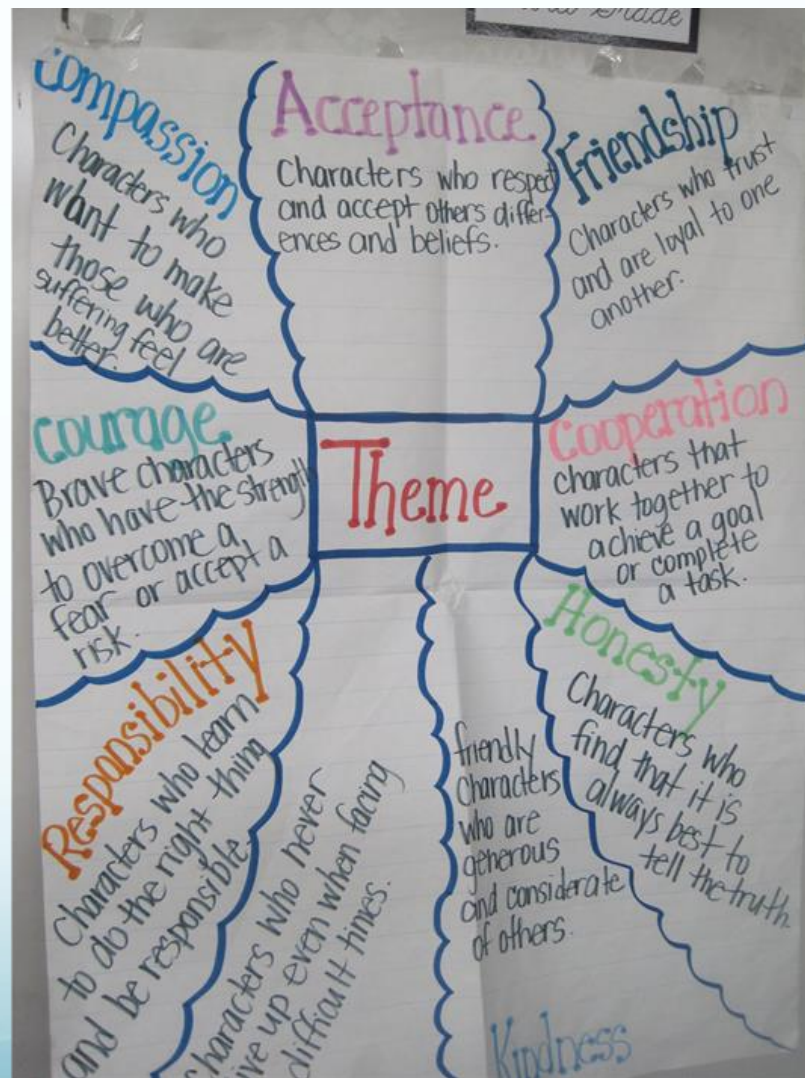 Grade
Compassion
Characters who
want to make
those who are
suffering feel
better.
Acceptance
Characters who respect
and accept others differ-
ences and beliefs.
Friendship
Characters who trust
and are loyal to one
another.
Courage
Brave characters
who have the strength
to overcome a
fear or accept a
risk.
Theme
Cooperation
characters that
work together to
achieve a goal
or complete
a task.
Responsibility
Characters who learn
to do the right thing
and be responsible.
Characters who never
give up even when facing
difficult times.
friendly
characters
who are
generous
and considerate
of others.
Kindness
Honesty
Characters who
find that it is
always best to
tell the truth.